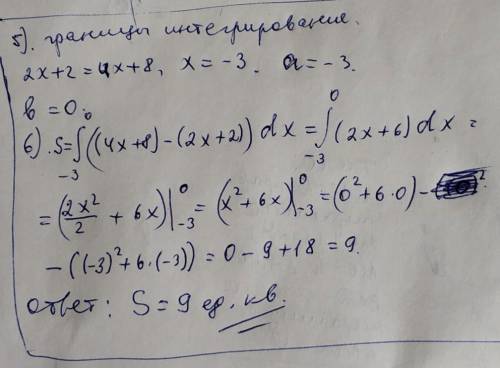 5). границы интегрирование.
2x+2=4x+8, x=-3. a=-3.
b=0.
6). S=∫₋₃⁰((4x+8)-(2x+2))dx=∫₋₃⁰(2x+6)dx=
=(2x²/2+6x)|₋₃⁰=(x²+6x)|₋₃⁰=(0²+6·0)-
-((-3)²+6·(-3))=0-9+18=9.
ответ: S=9 ед. кв.